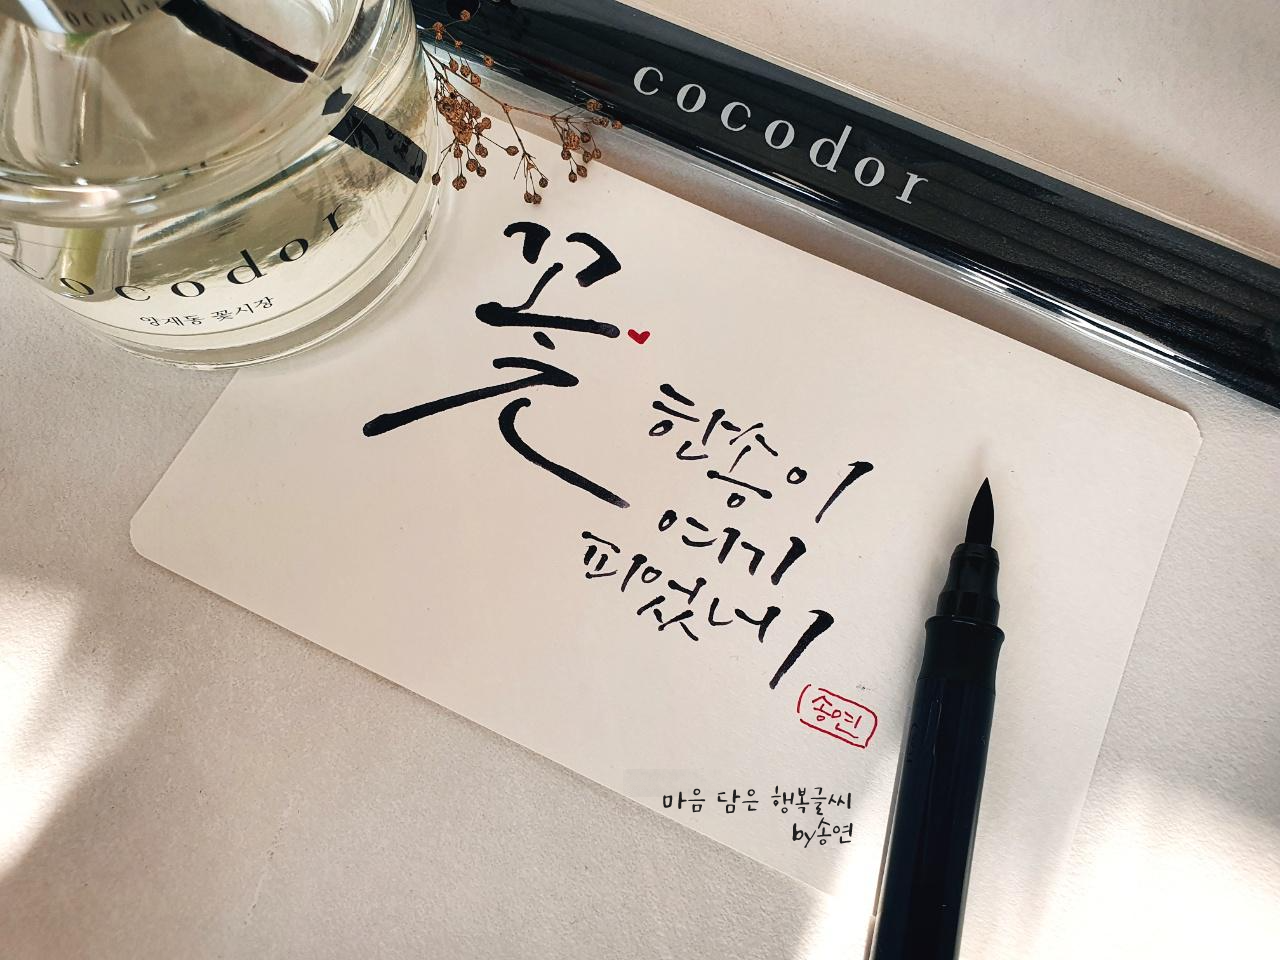 cocodor
cocodor
cocodor
양재동 꽃시장
꽃
한송이
여기
피었네
송연
마음 담은 행복글씨
by송연